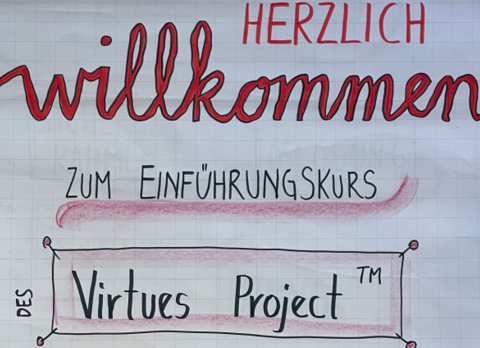 HERZLICH
willkommen
ZUM EINFÜHRUNGSKURS
DES
Virtues Project™